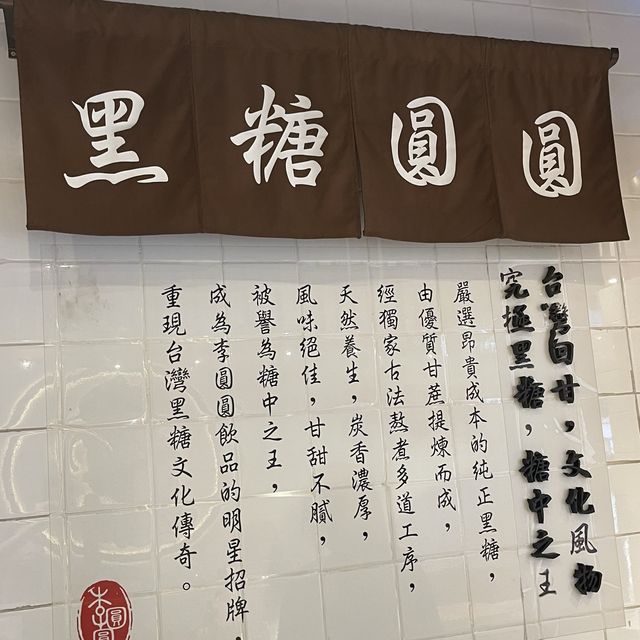 黑糖圓圓
台灣回甘，文化風物
究極黑糖，糖中之王
嚴選昂貴成本的純正黑糖，
由優質甘蔗提煉而成，
經獨家古法熬煮多道工序，
天然養生，炭香濃厚，
風味絕佳，甘甜不膩，
被譽為糖中之王，
成為李圓圓飲品的明星招牌，
重現台灣黑糖文化傳奇。
李圓圓